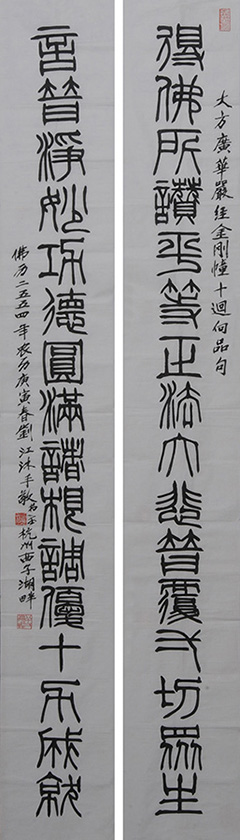 大方廣華嚴經金剛幢十迴向品句
得佛所讚平等正法大悲普覆一切眾生
音普淨妙功德圓滿諸根調優十力成就
佛历二五五四年农历庚寅春劉江沐手敬书於杭州西子湖畔